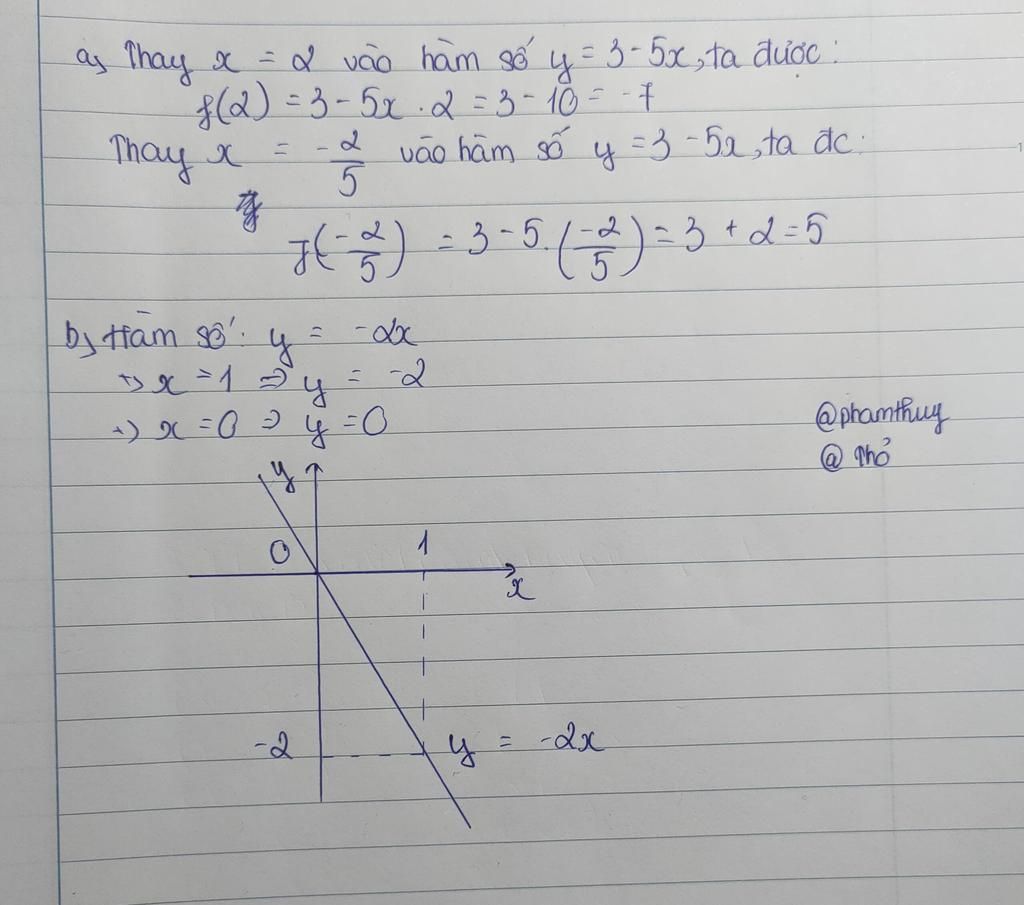 a, Thay x = 2 vào hàm số y = 3 - 5x, ta được:
f(2) = 3 - 5x . 2 = 3 - 10 = -7
Thay x = -2/5 vào hàm số y = 3 - 5x, ta đc:
f(-2/5) = 3 - 5. (-2/5) = 3 + 2 = 5
b, Hàm số: y = -2x
+) x = 1 ⇒ y = -2
+) x = 0 ⇒ y = 0
@phamthuy
@ Thỏ
y
0 1
x
-2 y = -2x